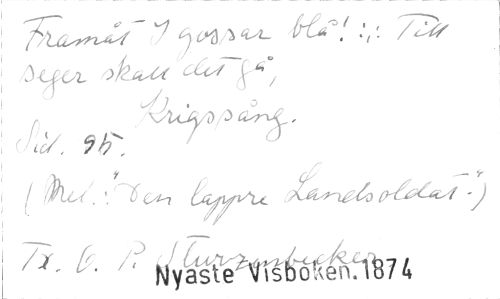 Framåt I gossar blå! :,: Till
seger skall det gå,
Krigssång.
Sid. 95.
(Mel. "Den tappre Landsoldat.")
Tx. O. P. Sturzenbecker
Nyaste Visboken. 1874